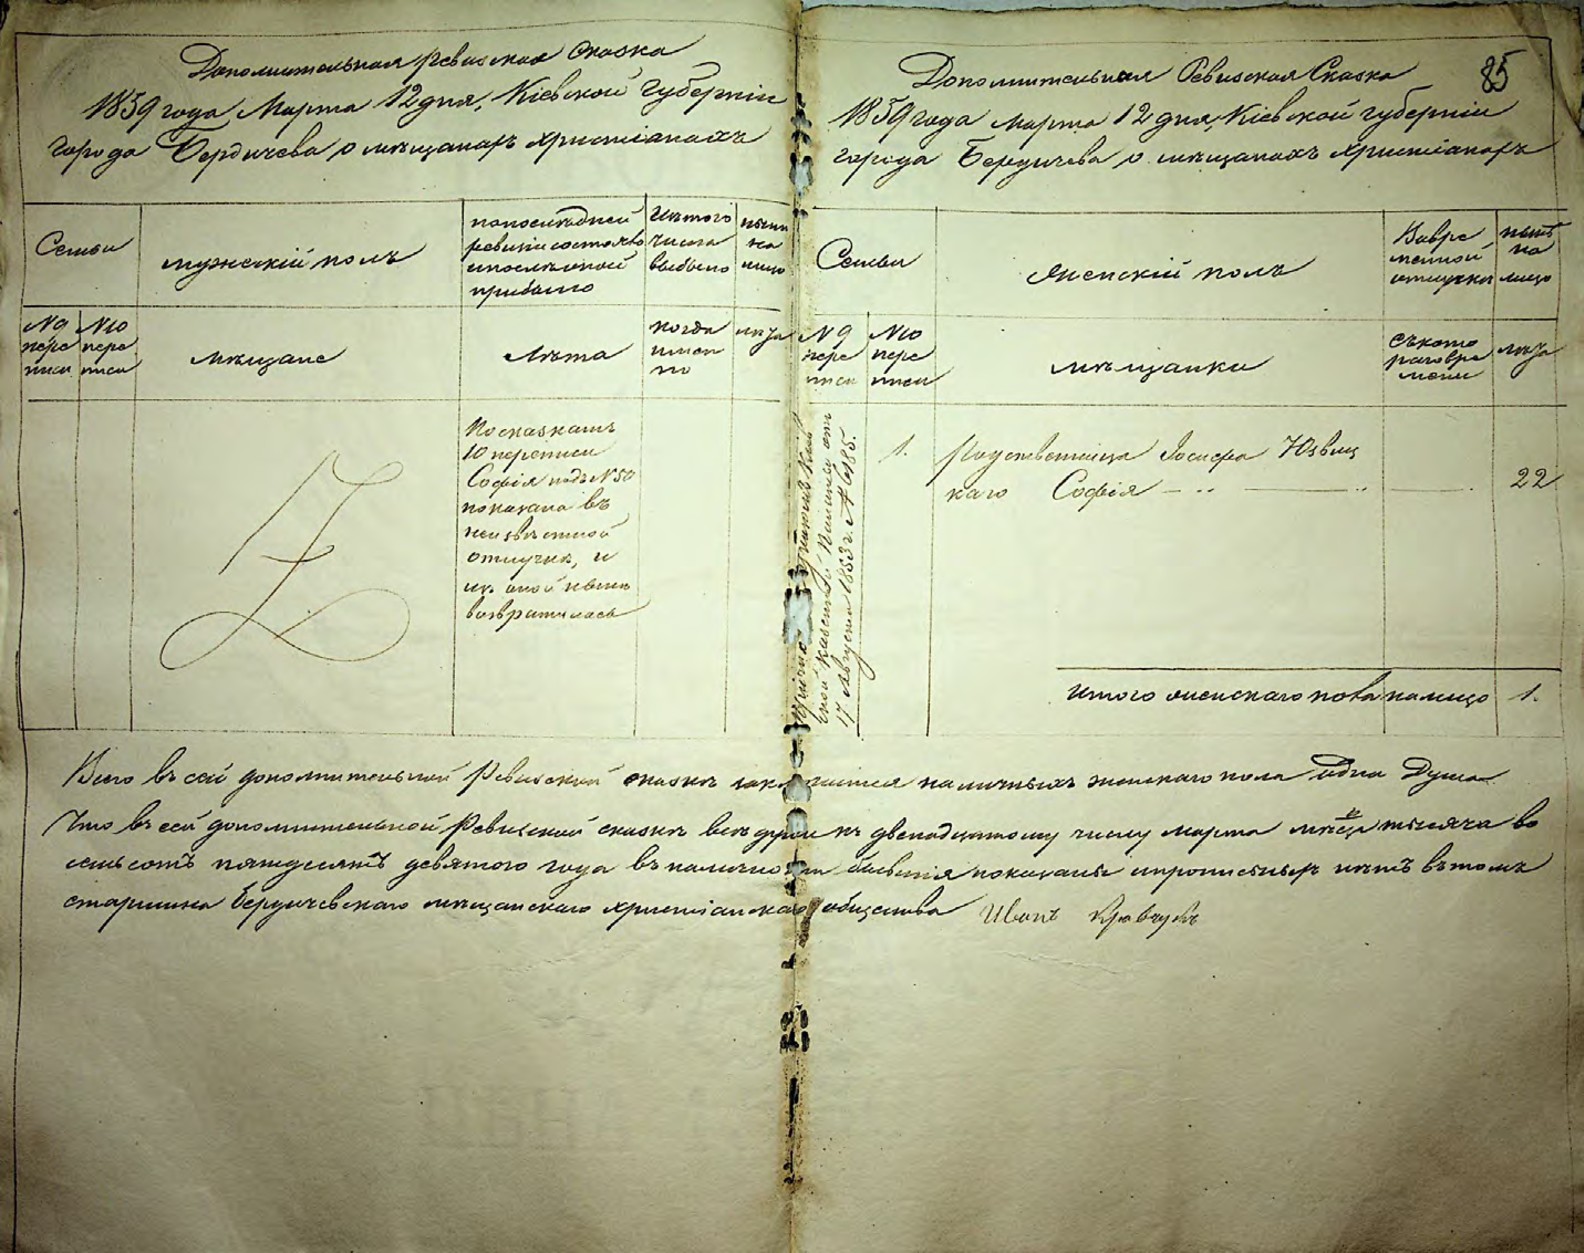 Дополнительная Ревизская Сказка
1859 года Марта 12 дня, Кіевской Губерніи
города Бердичева о мѣщанахъ христіанахъ
Семьи
мужескій полъ
по последней
ревизіи состояло
и после оной
прибыло
Изъ того
числа
выбыло
нынѣ
на
лицо
№ 9
пере
писи
№ 10
пере
писи
мѣщане
Лѣта
когда
имен
но
лѣта
По сказкамъ
10 переписи
Софія подъ № 50
показана въ
неизвѣстной
отлучкѣ, и
изъ оной нынѣ
возвратилась
85
Дополнительная Ревизская Сказка
1859 года марта 12 дня, Кіевской губерніи
города Бердичева о мѣщанахъ христіанахъ
Семьи
Женскій полъ
Во вре
менной
отлучки
нынѣ
на
лицо
№ 9
пере
писи
№ 10
пере
писи
мѣщанки
съ кото
раго вре
мени
лѣта
ской казенной Палаты отъ
17 Августа 1853 г. № 6185.
1. Родственница Іосифа Юзвиц
каго Софія 22
Итого женскаго пола на лицо 1.
Всего въ сей дополнительной Ревизской сказкѣ наличныхъ женскаго пола одна Душа
Что въ сей дополнительной Ревизской сказкѣ все души къ двенадцатому числу марта мѣца тысяча во
семьсотъ пятдесятъ девятого года въ наличности показаны и прописныхъ нетъ въ томъ
старшина Бердичевскаго мѣщанскаго христіанскаго общества Иванъ Кравчукъ